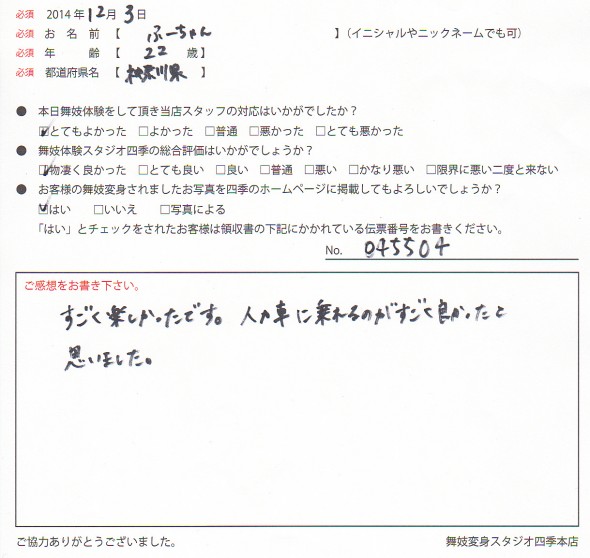 必須 2014年12月3日
必須 お名前【 ふーちゃん 】(イニシャルやニックネームでも可)
必須 年齢【 22 歳】
必須 都道府県名【 神奈川県 】
● 本日舞妓体験をして頂き当店スタッフの対応はいかがでしたか？
☑とてもよかった □よかった □普通 □悪かった □とても悪かった
● 舞妓体験スタジオ四季の総合評価はいかがでしょうか？
☑物凄く良かった □とても良い □良い □普通 □悪い □かなり悪い □限界に悪い二度と来ない
● お客様の舞妓変身されましたお写真を四季のホームページに掲載してもよろしいでしょうか？
☑はい □いいえ □写真による
「はい」とチェックをされたお客様は領収書の下記にかかれている伝票番号をお書きください。
No. 045504
ご感想をお書き下さい。
すごく楽しかったです。人力車に乗れるのがすごく良かったと
思いました。
ご協力ありがとうございました。 舞妓変身スタジオ四季本店